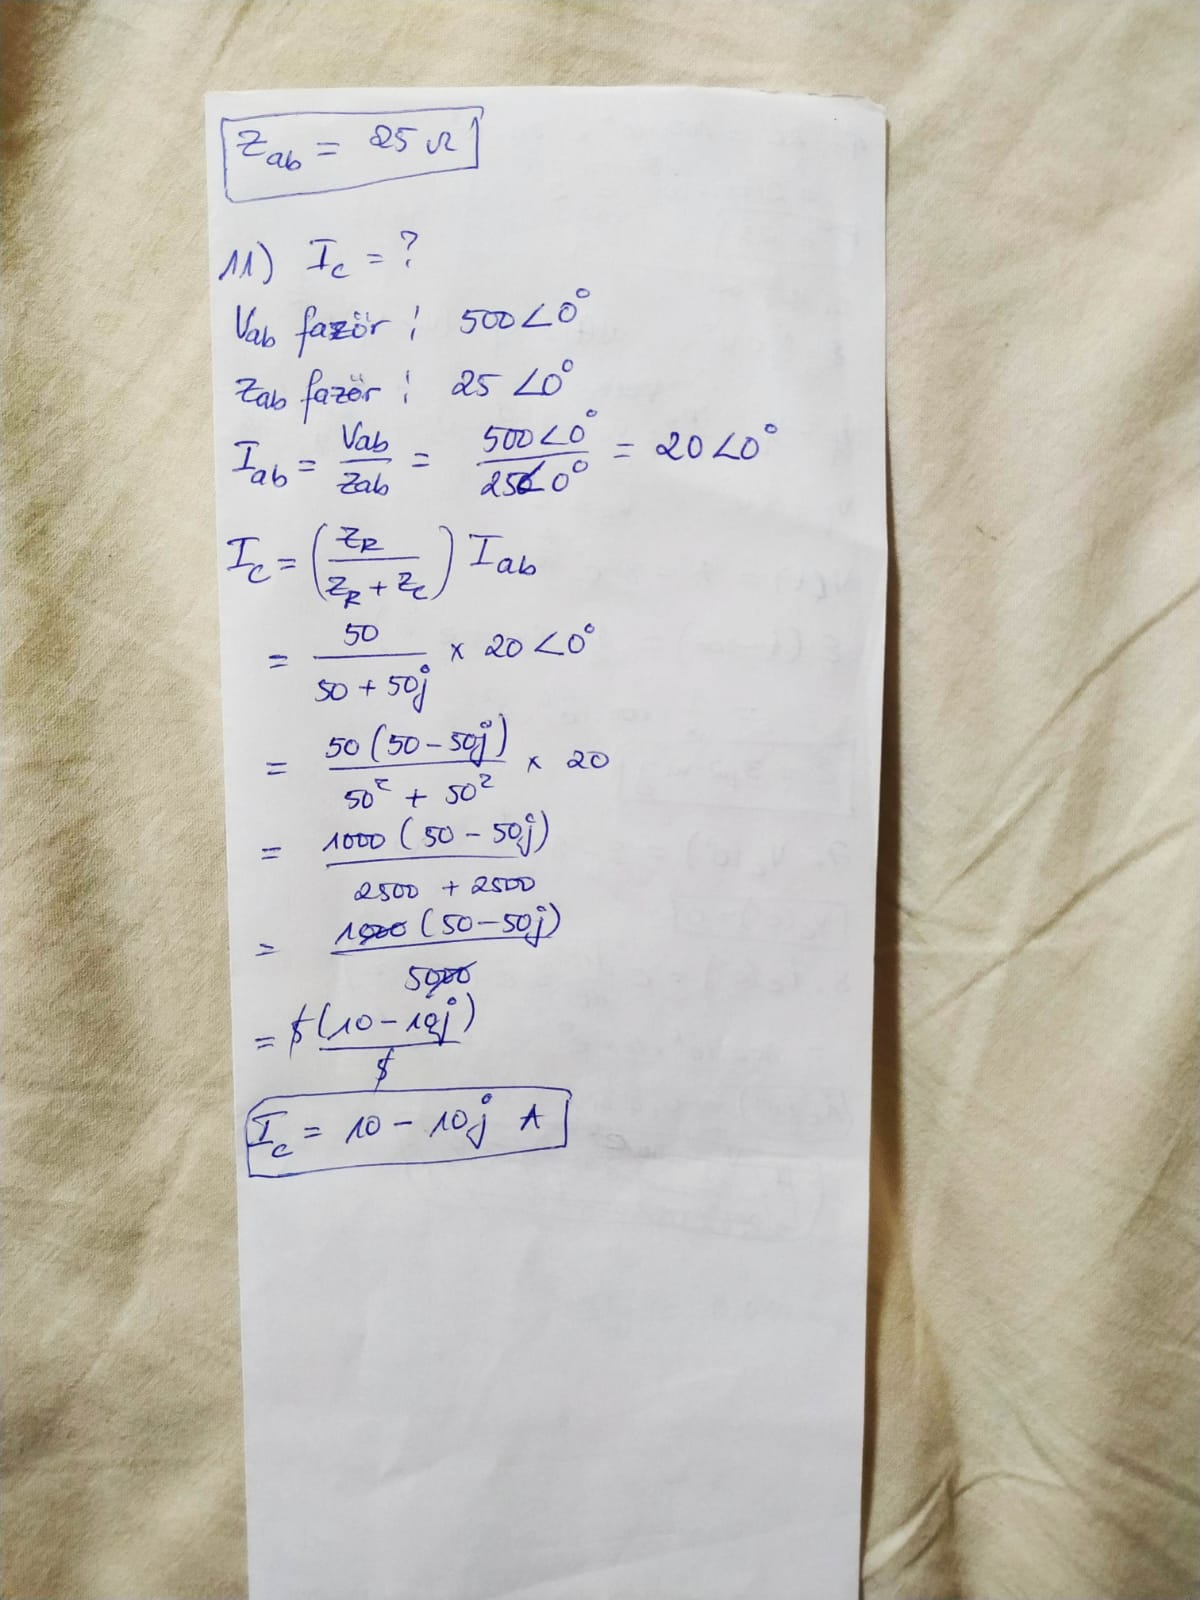 Zab = 25 Ω
11) Ic = ?
Vab fazör : 500∠0°
Zab fazör : 25∠0°
Iab = Vab/Zab = 500∠0°/25∠0° = 20∠0°
Ic = (ZR/(ZR + Zc)) Iab
= 50/(50 + 50j) x 20∠0°
= 50(50 - 50j)/(50² + 50²) x 20
= 1000(50 - 50j)/(2500 + 2500)
= 1000(50 - 50j)/5000
= 5(10 - 10j)/5
Ic = 10 - 10j A